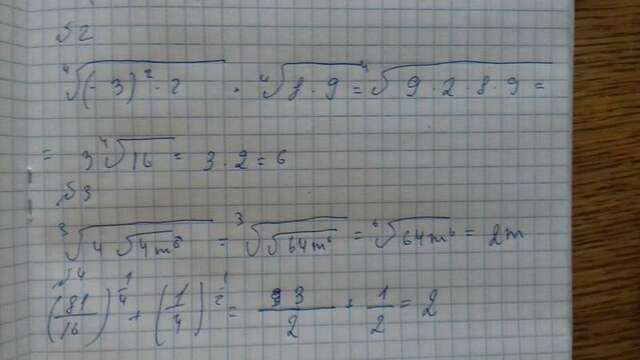 №2
⁴√((-3)²·2) · ⁴√(8·9) = ⁴√(9·2·8·9) =
= 3 ⁴√16 = 3·2 = 6
№3
³√(4√(4m⁶)) = ³√(√(64m⁶)) = ⁶√(64m⁶) = 2m
№4
(81/16)^(1/4) + (1/4)^(1/2) = 3/2 + 1/2 = 2